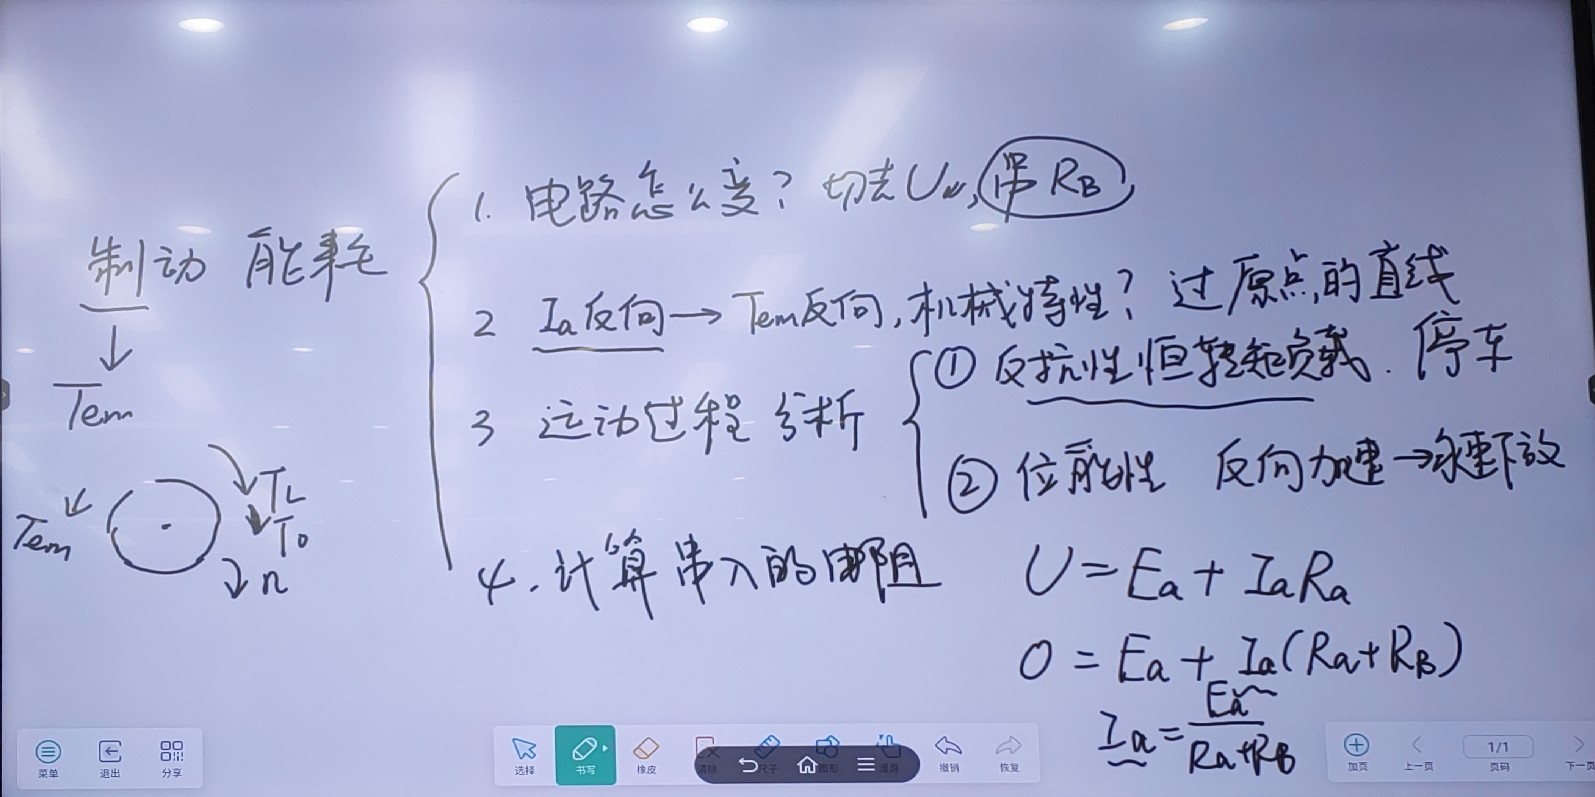 制动 能耗
↓
Tem
Tem
TL
T0
n
1. 电路怎么变？切去UN, 串RB
2 Ia反向→Tem反向,机械特性？过原点的直线
3 运动过程分析
① 反抗性恒转矩负载. 停车
② 位能性 反向加速→匀速下放
4. 计算串入的电阻
U=Ea+IaRa
0=Ea+Ia(Ra+RB)
Ia=Ea/(Ra+RB)
菜单
退出
分享
选择
书写
橡皮
撤销
恢复
加页
上一页
1/1
页码
下一页